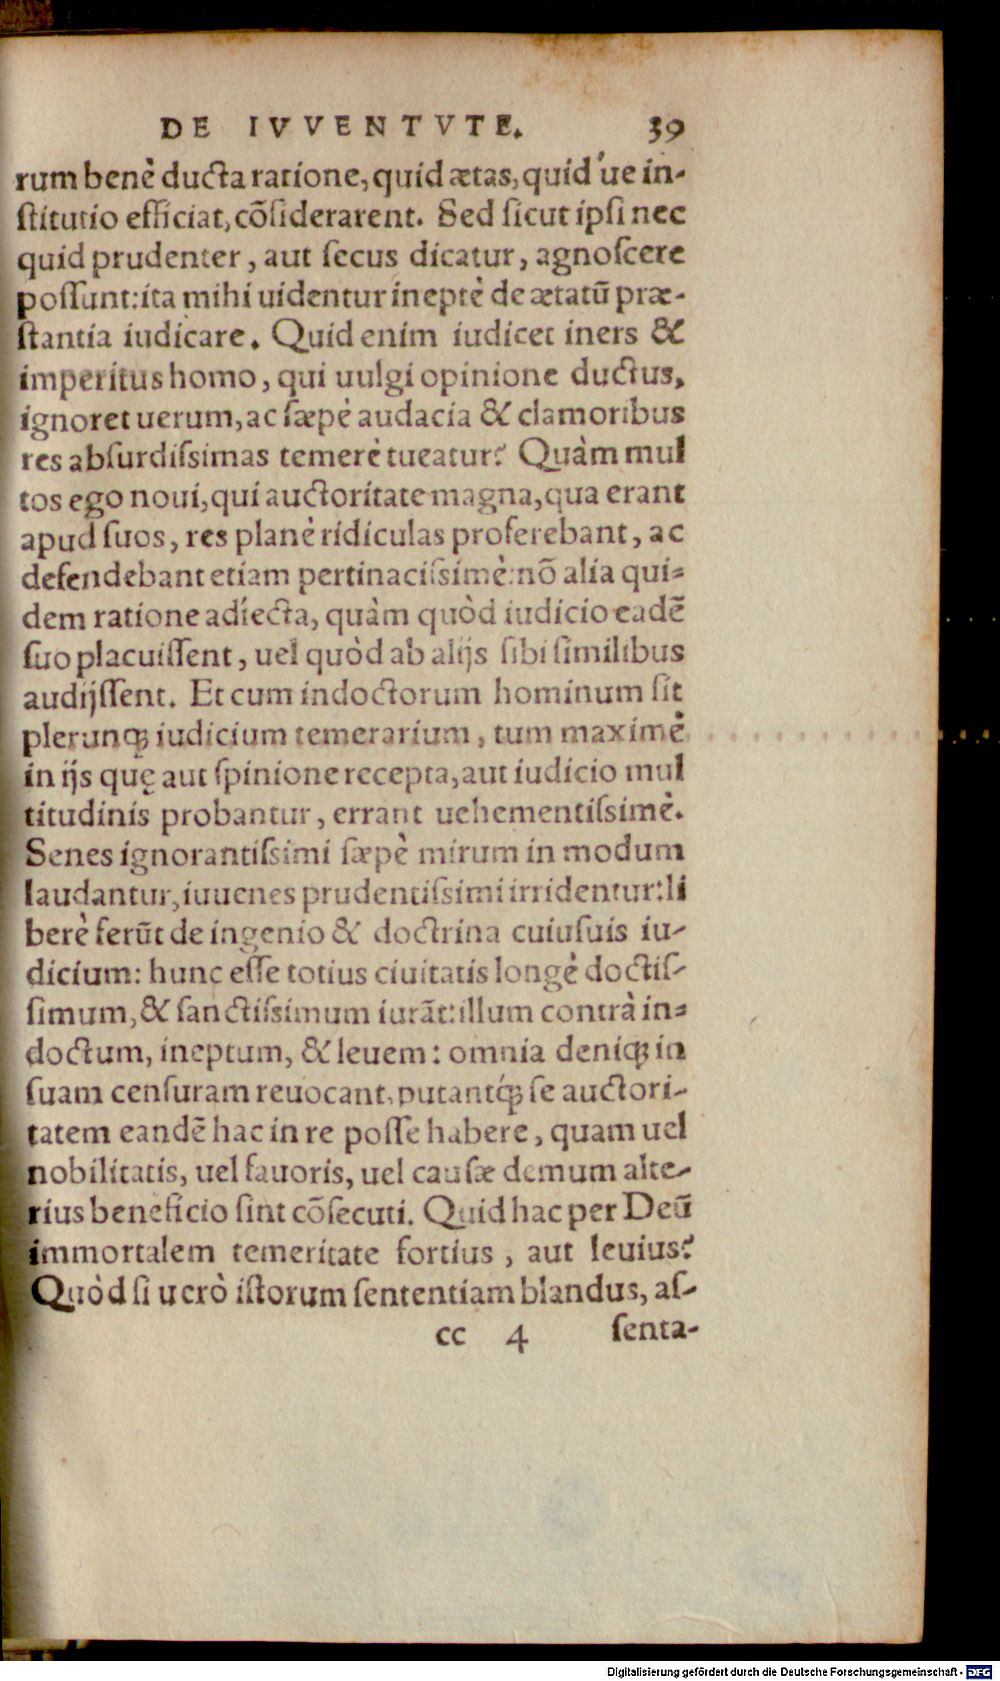 DE IVVENTVTE. 39
rum benè ducta ratione, quid ætas, quid'ue in-
ſtitutio efficiat, cõſiderarent. Sed ſicut ipſi nec
quid prudenter, aut ſecus dicatur, agnoſcere
poſſunt: ita mihi uidentur ineptè de ætatũ præ-
ſtantia iudicare. Quid enim iudicet iners &
imperitus homo, qui uulgi opinione ductus,
ignoret uerum, ac ſæpè audacia & clamoribus
res abſurdiſsimas temerè tueatur? Quàm mul
tos ego noui, qui auctoritate magna, qua erant
apud ſuos, res planè ridiculas proferebant, ac
defendebant etiam pertinaciſsimè: nõ alia qui-
dem ratione adiecta, quàm quòd iudicio eadẽ
ſuo placuiſſent, uel quòd ab alijs ſibi ſimilibus
audijſſent. Et cum indoctorum hominum ſit
plerunqꝫ iudicium temerarium, tum maximè
in ijs quę aut ſpinione recepta, aut iudicio mul
titudinis probantur, errant uehementiſsimè.
Senes ignorantiſsimi ſæpè mirum in modum
laudantur, iuuenes prudentiſsimi irridentur: li
berè ferũt de ingenio & doctrina cuiuſuis iu-
dicium: hunc eſſe totius ciuitatis longè doctiſ-
ſimum, & ſanctiſsimum iurãt: illum contrà in-
doctum, ineptum, & leuem: omnia deniqꝫ in
ſuam cenſuram reuocant, putantq́ꝫ ſe auctori-
tatem eandẽ hac in re poſſe habere, quam uel
nobilitatis, uel fauoris, uel cauſæ demum alte-
rius beneficio ſint cõſecuti. Quid hac per Deũ
immortalem temeritate fortius, aut leuius?
Quòd ſi uerò iſtorum ſententiam blandus, aſ-
cc 4 ſenta-
Digitalisierung gefördert durch die Deutsche Forschungsgemeinschaft - DFG